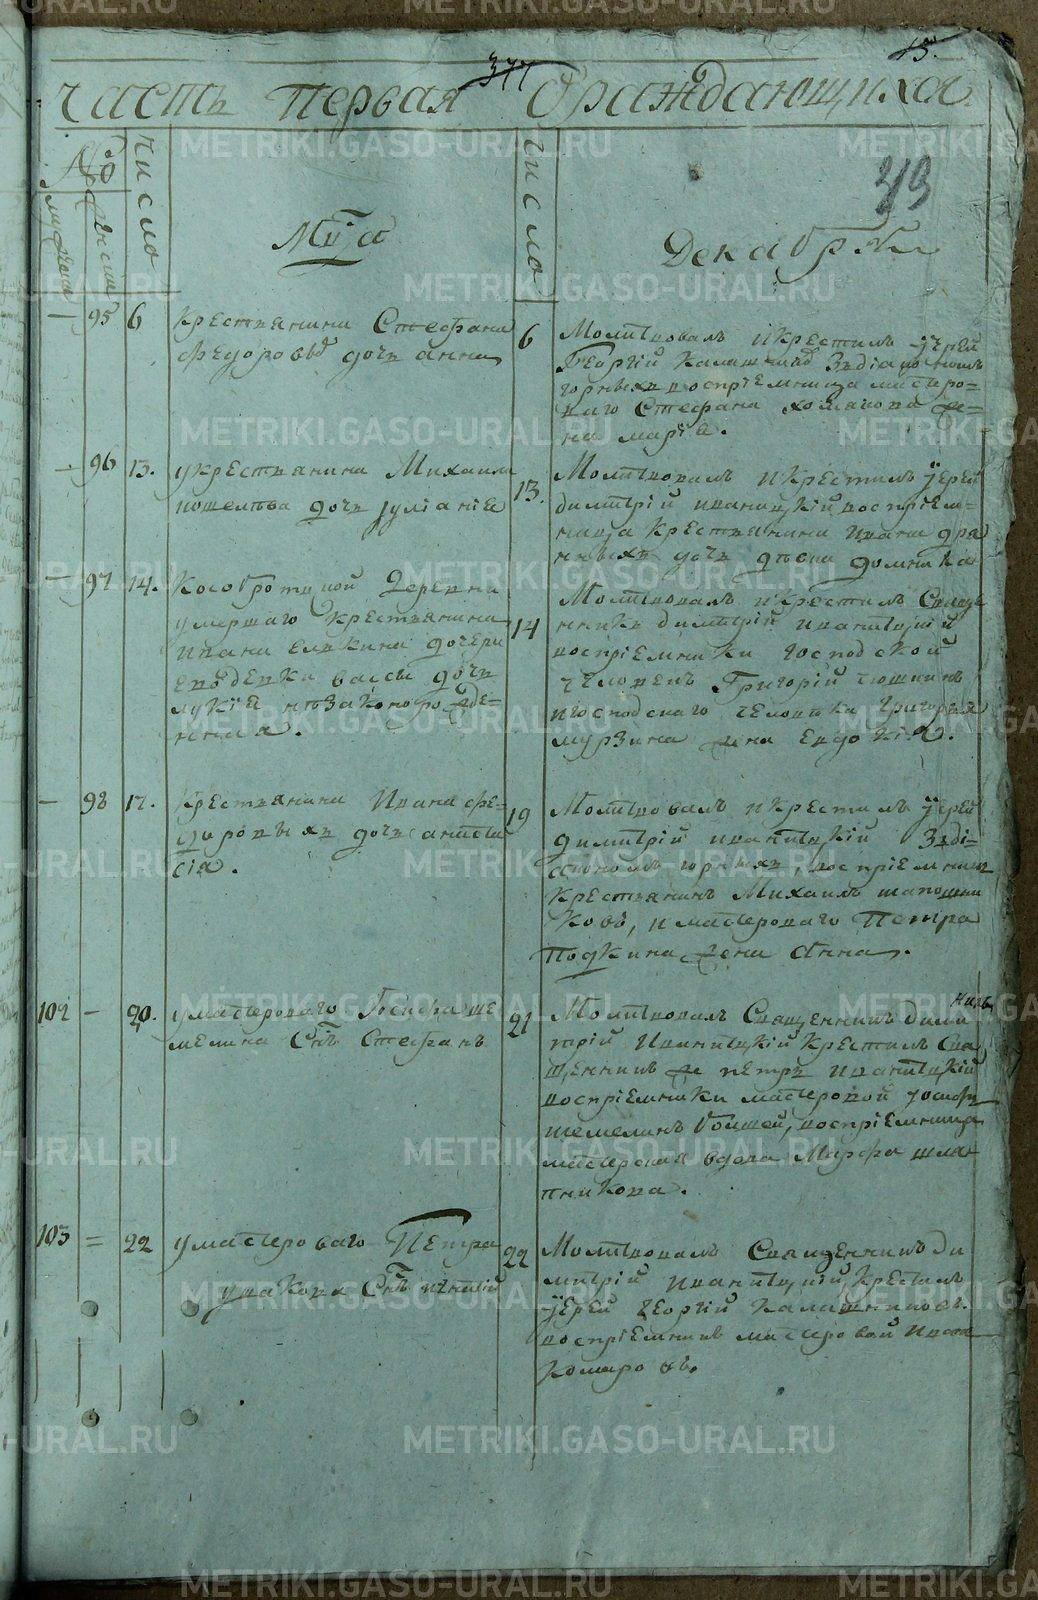 377
15.
Часть первая
ораждающихся
43
№
Число
Число
мужеска
женска
Мца
Декабря
95 6 крестьянина Стефана
федоровых дочь анна
6 Молитвовалъ икрестилъ іерей
Георгій Калашниковъ Здіакономъ
горныхъ воспріемница мастеро-
ваго Стефана хомякова же-
на маріа.
96 13. укрестьянина Михаила
дочь іуліаніа
13. Молитвовалъ икрестилъ іерей
димитрій иваницкій воспріем-
ница крестьянина ивана
дочь домника
97 14. Кособротской деревни
умершаго крестьянина
ивана елькина дочери
ево девки вассы дочь
лукіа незаконорожде-
нная.
14 Молитвовалъ икрестилъ Свяще
нникъ димитрій иваницкій
воспріемники господской
человекъ Григорій тюшнинъ
игосподскаго человека григорья
мурзина жена евдокіа.
98 17. крестьянина Ивана фе-
доровыхъ дочь анаста
сіа.
19 Молитвовалъ икрестилъ іерей
димитрій иваницкій Здіа-
кономъ горныхъ воспріемники
крестьянинъ Михаилъ шапошни
ковъ, имастероваго Петра
Подкина жена Анна.
102 20. умастероваго Іосифа ше
мелина Снъ Стефанъ
21 Молитвовалъ Священникъ дими
трій Иваницкій Крестилъ Свя
щенникъ же петръ иваницкій
воспріемники мастеровой іосифъ
шемелинъ большей, воспріемница
мастерская вдова Марфа шля
пникова.
103 22 умастероваго Петра
ушакова Снъ
22 Молитвовалъ Священникъ ди
митрій иваницкій, Крестилъ
іерей георгій Калашниковъ.
воспріемникъ мастеровой Иванъ
комаровъ.
METRIKI.GASO-URAL.RU